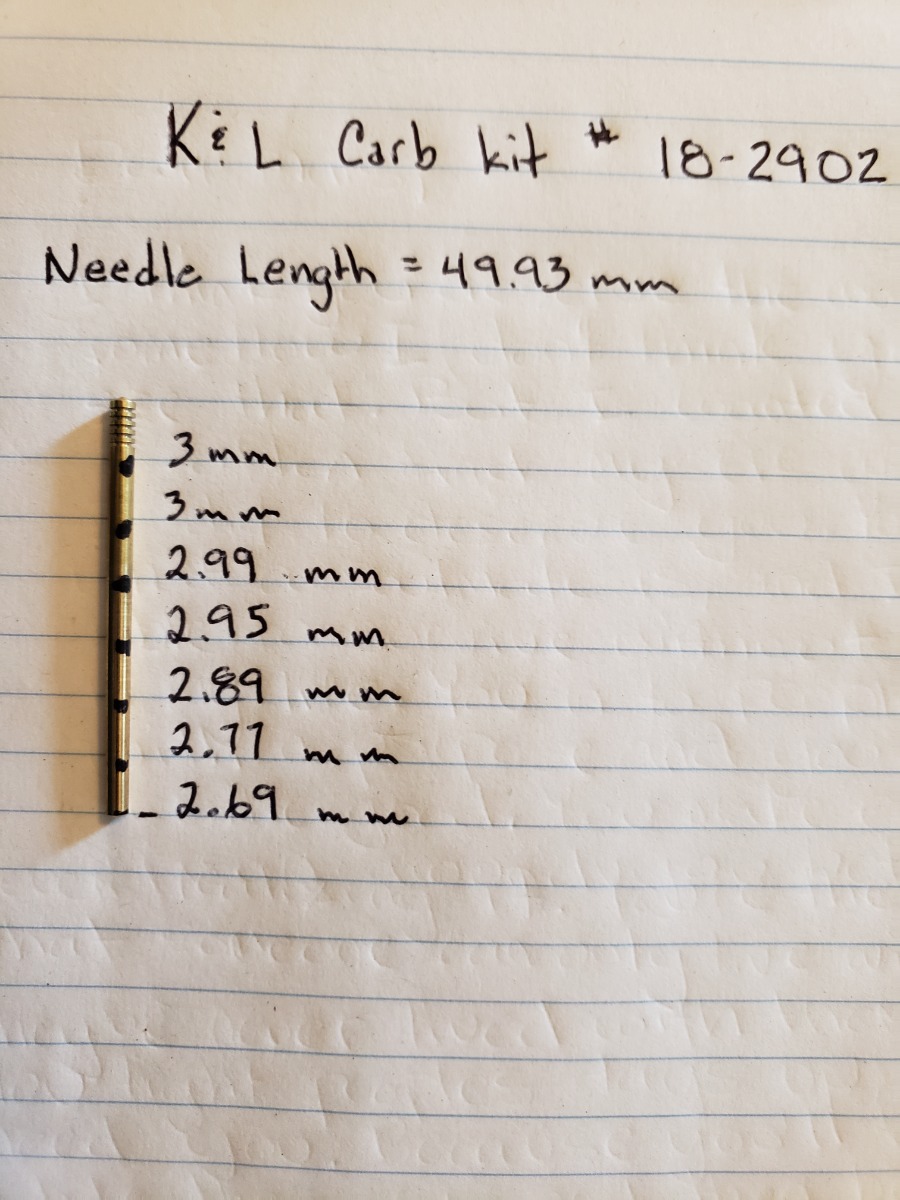 K & L Carb kit # 18-2902
Needle Length = 49.93 mm
3 mm
3 mm
2.99 mm
2.95 mm
2.89 mm
2.77 mm
- 2.69 mm